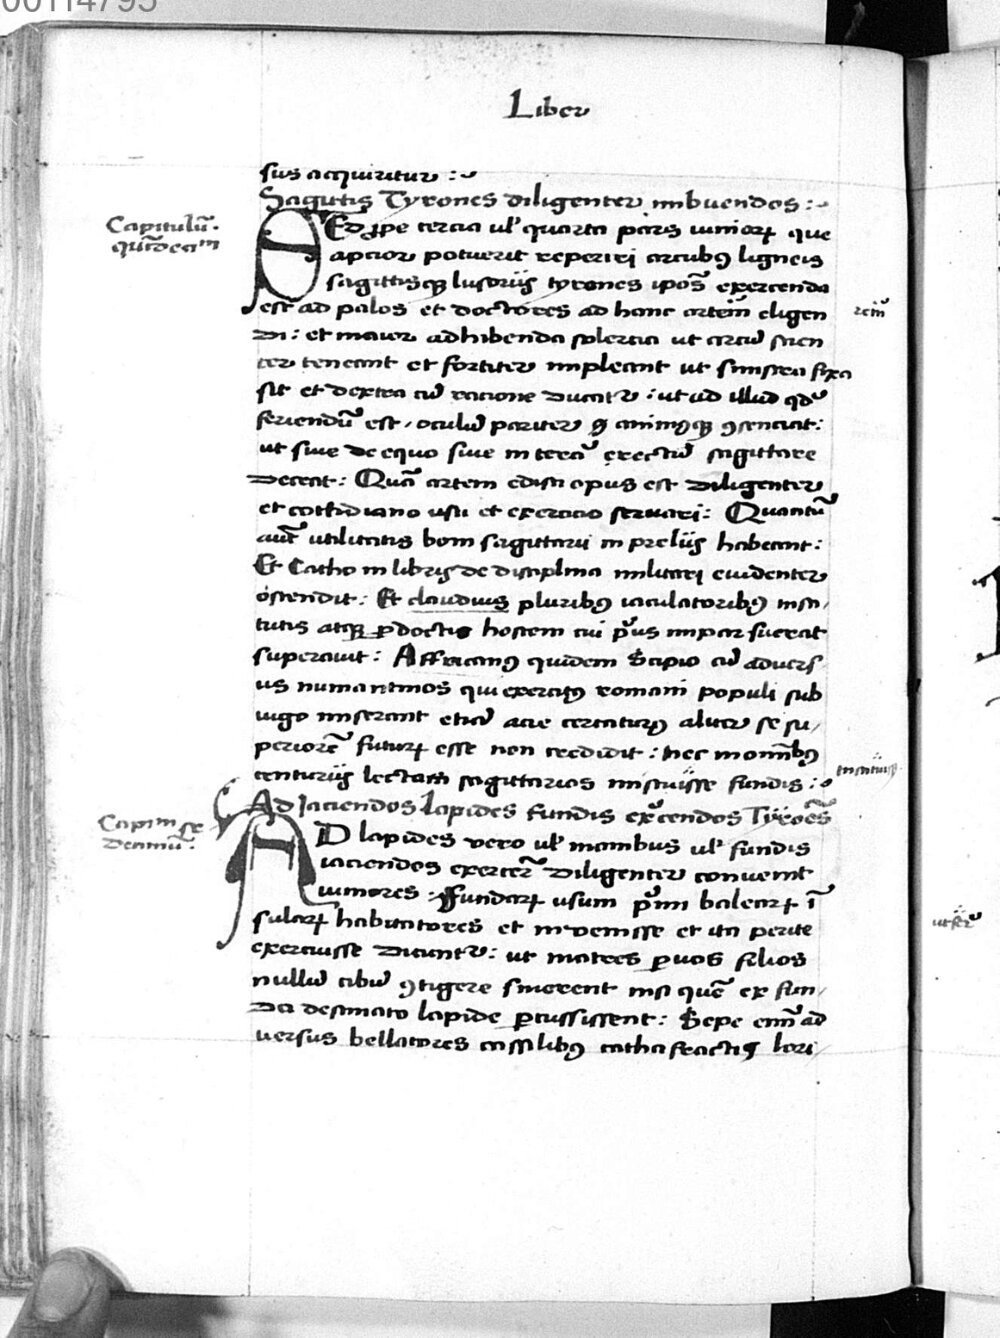 00114795
Liber
sus acquiritur :~
Sagittis Tyrones diligenter imbuendos :~
Capitulũ.
quĩdecim
SEd ꝓpe tercia ul' quarta pars iuniorꝝ que
aptior potuerit reperiri arcubꝰ ligneis
sagittisqꝫ lusoriis tyrones ipos̃ exercenda
est ad palos et doctores ad hanc artem̃ eligen
di : et maior adhibenda solertia ut arcũ scien
ter teneant et fortiter impleant ut sinistra fixa
sit et dextra cũ racione ducatur : ut ad illud qd̃
feriendũ est, oculũ pariter ꝙ animꝰqꝫ ꝯsenciat:
ut siue de equo siue in terra᷈ erectũ sagittare
deceat : Quã artem edisci opus est diligenter
et cottidiano usu et exercicio seruari : Quantũ
aut̃ utilitatis boni sagittarii in preliis habeant :
Et Catho in libris de disciplina militari euidenter
ostendit : Et claudius pluribꝰ iaculatoribꝰ insti,
tutis atqꝫ ꝑdoctis hostem cui pꝰus impar fuerat
superauit : Affricanꝰ quidem Scipio cũ aduers
us numantinos qui exercitꝰ romani populi sub
iugo miserant etiã acie certaturꝰ aliter se su,
periorẽ futurꝝ esse non credidit : nec in omĩbꝰ
centuriis lectam sagittarios miscuisse fundis :~
Ad Iaciendos lapides fundis exercendos Tyrões
Capim̃ se
decimũ :
AD lapides vero ul' manibus ul' fundis
iaciendos exercer̃ diligenter conuenit
iuniores . Fundarꝝ usum pr̃mi balearꝝ ĩ
sularꝝ habitatores et inuenisse et ita perite
exercuisse dicuntur : ut matres paruos filios
nullũ cibũ ꝯtigere sinerent nisi quẽ ex fun,
da destinato lapide ꝑcussissent : Sepe enĩ ad
uersus bellatores cassilibꝰ cathafractis lori,